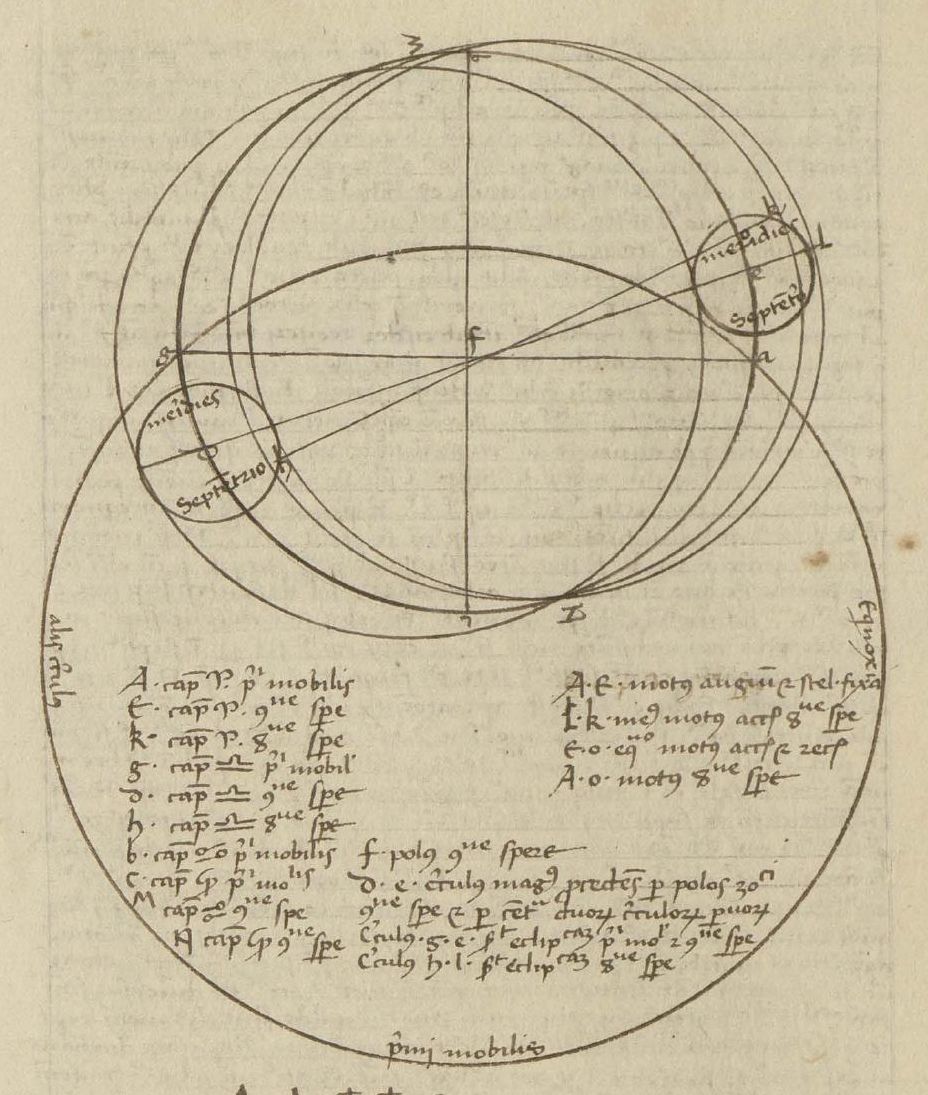 m
b
k
meridies
o
l
e
Septẽt
f
g
a
meridies
d
h
Septẽtrio
c
N
aliꝯ cĩculꝯ
Equnox
A · cap̃ ♈ · p̃ⁱ mobilis
E · cap̃ ♈ · 9ᵘᵉ sp̃e
k · cap̃ ♈ · 8ᵘᵉ sp̃e
g · cap̃ ♎ p̃ⁱ mobil
d · cap̃ ♎ 9ᵘᵉ sp̃e
h · cap̃ ♎ 8ᵘᵉ sp̃e
b · cap̃ ♋ p̃ⁱ mobilis
c · cap̃ p̃ⁱ moˡⁱˢ
M cap̃ ♋ 9ᵘᵉ spe
N cap̃ 9ᵘᵉ spe
A · E · motꝯ augiũ ⁊ stel · fyxaꝝ
L · k · medꝯ motꝯ accẽs 8ᵘᵉ sp̃e
E · o · eqᵘᵒ motꝯ accẽs ⁊ recẽs
A · o · motꝯ 8ᵘᵉ sp̃e
f · polꝯ 9ᵘᵉ spere
d · e · cĩculꝯ magꝯ p̃cedẽs ꝑ polos zoᶜⁱ
9ᵘᵉ spe ⁊ ꝑ cẽtᵃ duoꝝ cĩculoꝝ ꝑuoꝝ
Cculꝯ · g · e · sᵗ eclipᶜᵃᵐ p̃ⁱ moˡ ⁊ 9ᵘᵉ spe
Cculꝯ h · l · sᵗ eclipᶜᵃᵐ 8ᵘᵉ spe
p̃mi mobilis